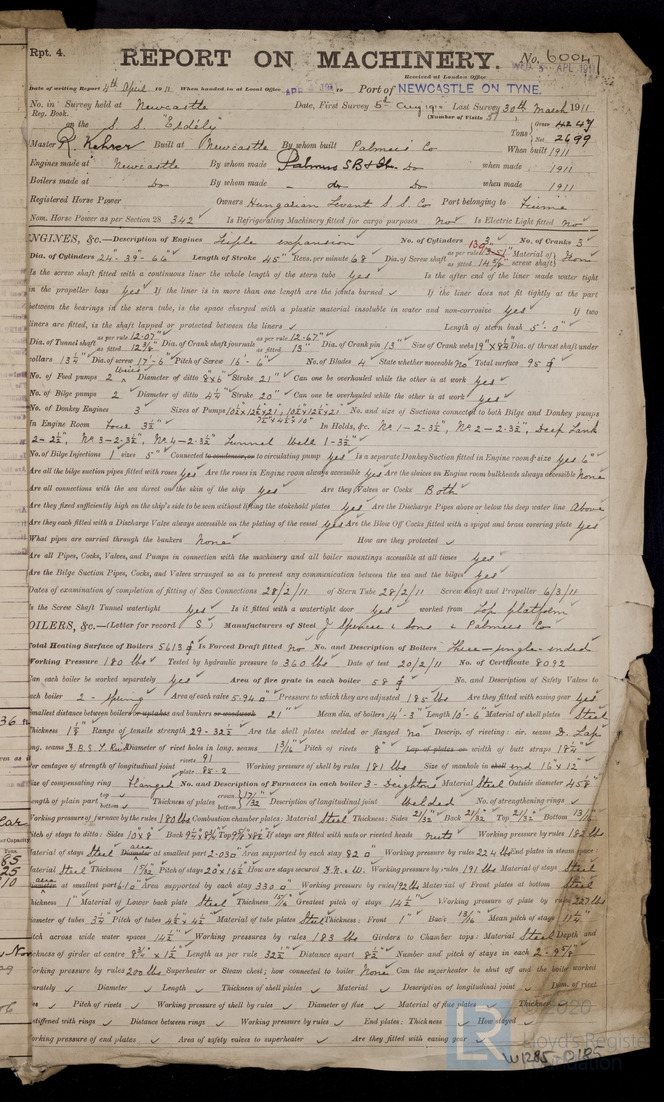 Rpt. 4.
REPORT ON MACHINERY.
No. 60047
WED. 5 - APL 1911
Received at London Office
Date of writing Report 4th April 1911 When handed in at Local Office Port of NEWCASTLE ON TYNE.
No. in Survey held at Newcastle Date, First Survey 5th Aug 1910 Last Survey 30th March 1911
Reg. Book. (Number of Visits 51)
on the S. S. "Erdély" Tons Gross 4247 Net 2699
Master R. Kehrer Built at Newcastle By whom built Palmers Co When built 1911
Engines made at Newcastle By whom made Palmers S B & I Co when made 1911
Boilers made at Do By whom made do Do when made 1911
Registered Horse Power Owners Hungarian Levant S. S. Co Port belonging to Fiume
Nom. Horse Power as per Section 28 342 Is Refrigerating Machinery fitted for cargo purposes No Is Electric Light fitted No
ENGINES, &c.—Description of Engines Triple expansion No. of Cylinders 3 No. of Cranks 3
Dia. of Cylinders 24"-39"-66" Length of Stroke 45" Revs. per minute 68 Dia. of Screw shaft as per rule as fitted 14 5/8" Material of screw shaft Iron
Is the screw shaft fitted with a continuous liner the whole length of the stern tube yes Is the after end of the liner made water tight
in the propeller boss yes If the liner is in more than one length are the joints burned If the liner does not fit tightly at the part
between the bearings in the stern tube, is the space charged with a plastic material insoluble in water and non-corrosive yes If two
liners are fitted, is the shaft lapped or protected between the liners Length of stern bush 5'-0"
Dia. of Tunnel shaft as per rule 12.07" as fitted 12 3/8" Dia. of Crank shaft journals as per rule 12.67" as fitted 13" Dia. of Crank pin 13" Size of Crank webs 19"x8 1/4" Dia. of thrust shaft under
collars 13 1/4" Dia. of screw 17'-6" Pitch of Screw 16'-6" No. of Blades 4 State whether moveable No Total surface 95
No. of Feed pumps 2 Weirs Diameter of ditto 8"x6" Stroke 21" Can one be overhauled while the other is at work yes
No. of Bilge pumps 2 Diameter of ditto 4 1/4" Stroke 20" Can one be overhauled while the other is at work yes
No. of Donkey Engines 3 Sizes of Pumps No. and size of Suctions connected to both Bilge and Donkey pumps
In Engine Room Four 3 1/2" In Holds, &c. No. 1-2-3 1/2", No. 2-2-3 1/2", Deep Tank
2-2 1/2", No. 3-2-3 1/2", No. 4-2-3 1/2" Tunnel Well 1-3 1/2"
No. of Bilge Injections 1 sizes 5" Connected to condenser, or to circulating pump yes Is a separate Donkey Suction fitted in Engine room & size yes 6"
Are all the bilge suction pipes fitted with roses yes Are the roses in Engine room always accessible yes Are the sluices on Engine room bulkheads always accessible None
Are all connections with the sea direct on the skin of the ship yes Are they Valves or Cocks Both
Are they fixed sufficiently high on the ship's side to be seen without lifting the stokehold plates yes Are the Discharge Pipes above or below the deep water line Above
Are they each fitted with a Discharge Valve always accessible on the plating of the vessel yes Are the Blow Off Cocks fitted with a spigot and brass covering plate yes
What pipes are carried through the bunkers None How are they protected
Are all Pipes, Cocks, Valves, and Pumps in connection with the machinery and all boiler mountings accessible at all times yes
Are the Bilge Suction Pipes, Cocks, and Valves arranged so as to prevent any communication between the sea and the bilges yes
Dates of examination of completion of fitting of Sea Connections 28/2/11 of Stern Tube 28/2/11 Screw shaft and Propeller 6/3/11
Is the Screw Shaft Tunnel watertight yes Is it fitted with a watertight door yes worked from Top platform
OILERS, &c.—(Letter for record S) Manufacturers of Steel J Spencer & Sons & Palmers Co
Total Heating Surface of Boilers 5613 Is Forced Draft fitted No No. and Description of Boilers Three-single-ended
Working Pressure 180 lbs Tested by hydraulic pressure to 360 lbs Date of test 20/2/11 No. of Certificate 8092
Can each boiler be worked separately yes Area of fire grate in each boiler 58 No. and Description of Safety Valves to
each boiler 2 - spring Area of each valve 5.94 Pressure to which they are adjusted 185 lbs Are they fitted with easing gear yes
Smallest distance between boilers or uptakes and bunkers or woodwork 21" Mean dia. of boilers 14'-3" Length 10'-6" Material of shell plates Steel
Thickness 1 1/8 Range of tensile strength 29-32 1/2 Are the shell plates welded or flanged No Descrip. of riveting: cir. seams D. Lap
long. seams D.B.S. T. Riv Diameter of rivet holes in long. seams 1 3/16" Pitch of rivets 8" Lap of plates or width of butt straps 18 1/4"
Per centages of strength of longitudinal joint rivets 91 plate 85.2 Working pressure of shell by rules 181 lbs Size of manhole in shell end 16"x12"
Size of compensating ring Flanged No. and Description of Furnaces in each boiler 3-Deightons Material Steel Outside diameter 45 5/8"
Length of plain part top bottom Thickness of plates crown bottom 17/32" Description of longitudinal joint Welded No. of strengthening rings
Working pressure of furnace by the rules 180 lbs Combustion chamber plates: Material Steel Thickness: Sides 21/32" Back 21/32" Top 21/32" Bottom 13/16"
Pitch of stays to ditto: Sides 10"x8" Back If stays are fitted with nuts or riveted heads nuts Working pressure by rules 182 lbs
Material of stays Steel area Diameter at smallest part 2.03 Area supported by each stay 82 Working pressure by rules 224 lbs End plates in steam space:
Material Steel Thickness Pitch of stays 20"x16 1/2" How are stays secured D.N. & W. Working pressure by rules 191 lbs Material of stays Steel
area Diameter at smallest part 6.10 Area supported by each stay 330 Working pressure by rules 192 lbs Material of Front plates at bottom Steel
Thickness 1" Material of Lower back plate Steel Thickness 15/16" Greatest pitch of stays 14 1/2" Working pressure of plate by rules 227 lbs
Diameter of tubes 3 1/4" Pitch of tubes 4 1/2"x4 1/2" Material of tube plates Steel Thickness: Front 1" Back 13/16" Mean pitch of stays 11 1/4"
Pitch across wide water spaces 14 1/2" Working pressures by rules 183 lbs Girders to Chamber tops: Material Steel Depth and
thickness of girder at centre 8 3/4"x1 1/2" Length as per rule 32 1/2" Distance apart 8 1/2" Number and pitch of stays in each 2-9 5/8"
Working pressure by rules 202 lbs Superheater or Steam chest; how connected to boiler None Can the superheater be shut off and the boiler worked
separately Diameter Length Thickness of shell plates Material Description of longitudinal joint Diam. of rivet
Pitch of rivets Working pressure of shell by rules Diameter of flue Material of flue plates Thickness
stiffened with rings Distance between rings Working pressure by rules End plates: Thickness How stayed
Working pressure of end plates Area of safety valves to superheater Are they fitted with easing gear
© 2020
Lloyd's Register
Foundation
W1285-0185